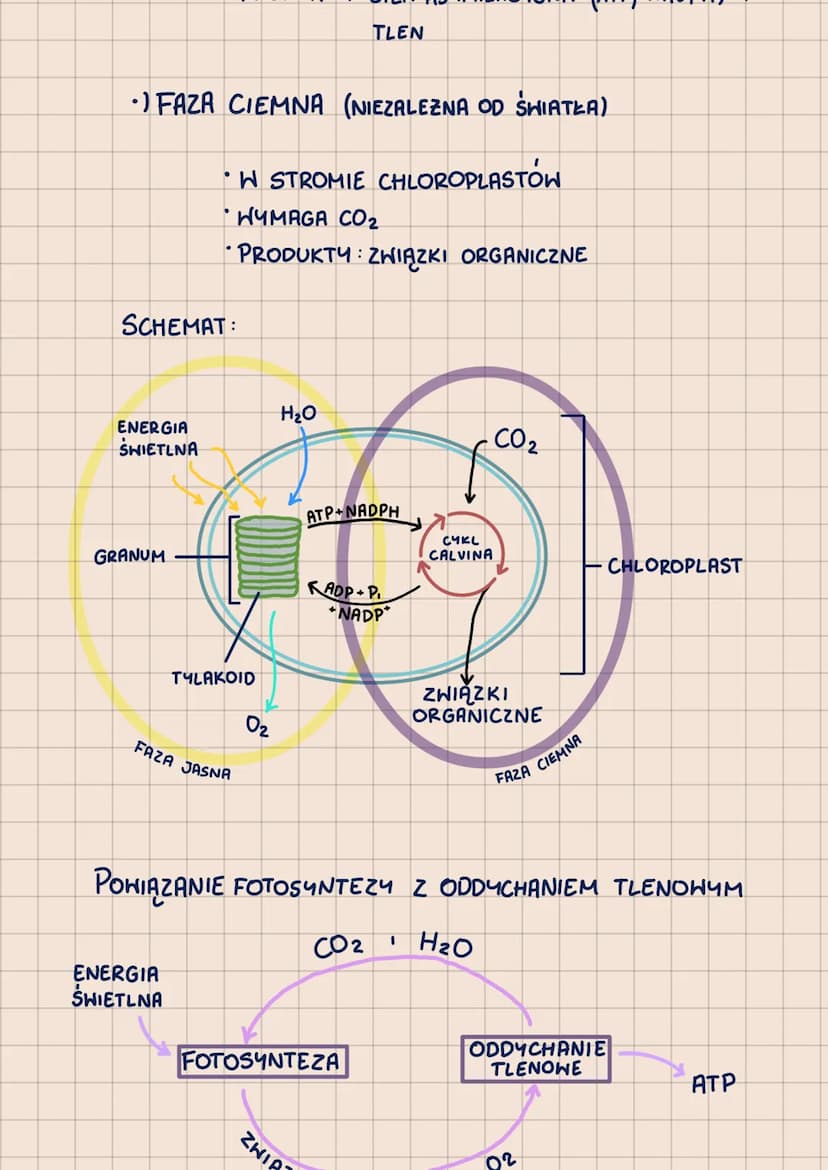 TLEN
·) FAZA CIEMNA (NIEZALEŻNA OD ŚWIATŁA)
· W STROMIE CHLOROPLASTÓW
· WYMAGA CO₂
· PRODUKTY: ZWIĄZKI ORGANICZNE
SCHEMAT:
ENERGIA
ŚWIETLNA
H₂O
CO₂
ATP+NADPH
CYKL
CALVINA
GRANUM
CHLOROPLAST
ADP+Pᵢ
+NADP⁺
TYLAKOID
ZWIĄZKI
ORGANICZNE
O₂
FAZA JASNA
FAZA CIEMNA
POWIĄZANIE FOTOSYNTEZY Z ODDYCHANIEM TLENOWYM
CO₂ i H₂O
ENERGIA
ŚWIETLNA
FOTOSYNTEZA
ODDYCHANIE
TLENOWE
ATP
O₂